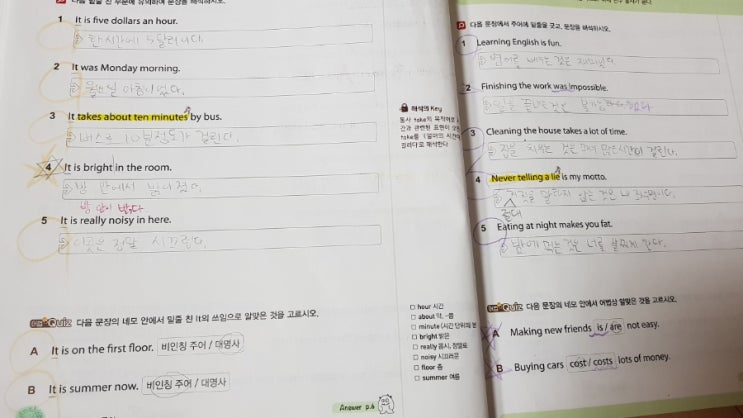 1 It is five dollars an hour.
한시간에 5달러이다.
2 It was Monday morning.
월요일 아침이었다.
3 It takes about ten minutes by bus.
버스로 10분정도가 걸린다.
4 It is bright in the room.
방 안에서 밝아졌다.
방 안이 밝다
5 It is really noisy in here.
이곳은 정말 시끄럽다.
Quiz 다음 문장의 네모 안에서 밑줄 친 It의 쓰임으로 알맞은 것을 고르시오.
A It is on the first floor. 비인칭 주어 / 대명사
B It is summer now. 비인칭 주어 / 대명사
해석의 Key
동사 take의 목적어로
간과 관련된 표현이
take를 (얼마의 시간이)
걸리다로 해석한다.
hour 시간
about 약, ~쯤
minute (시간 단위의) 분
bright 밝은
really 몹시, 정말로
noisy 시끄러운
floor 층
summer 여름
Answer p.6
다음 문장에서 주어에 밑줄을 긋고, 문장을 해석하시오.
1 Learning English is fun.
영어를 배우는 것은 재미있다.
2 Finishing the work was impossible.
일을 끝내는 것은 불가능했다
3 Cleaning the house takes a lot of time.
집을 치우는 것은 많은 시간이 걸린다.
4 Never telling a lie is my motto.
거짓을 말하지 않는 것은 내
절대
5 Eating at night makes you fat.
밤에 먹는 것은 너를 살찌게 한다.
Quiz 다음 문장의 네모 안에서 어법상 알맞은 것을 고르시오.
A Making new friends is / are not easy.
B Buying cars cost / costs lots of money.